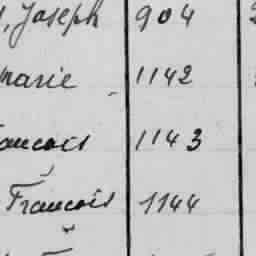 , Joseph 904
marie 1142
ancois 1143
Francois 1144